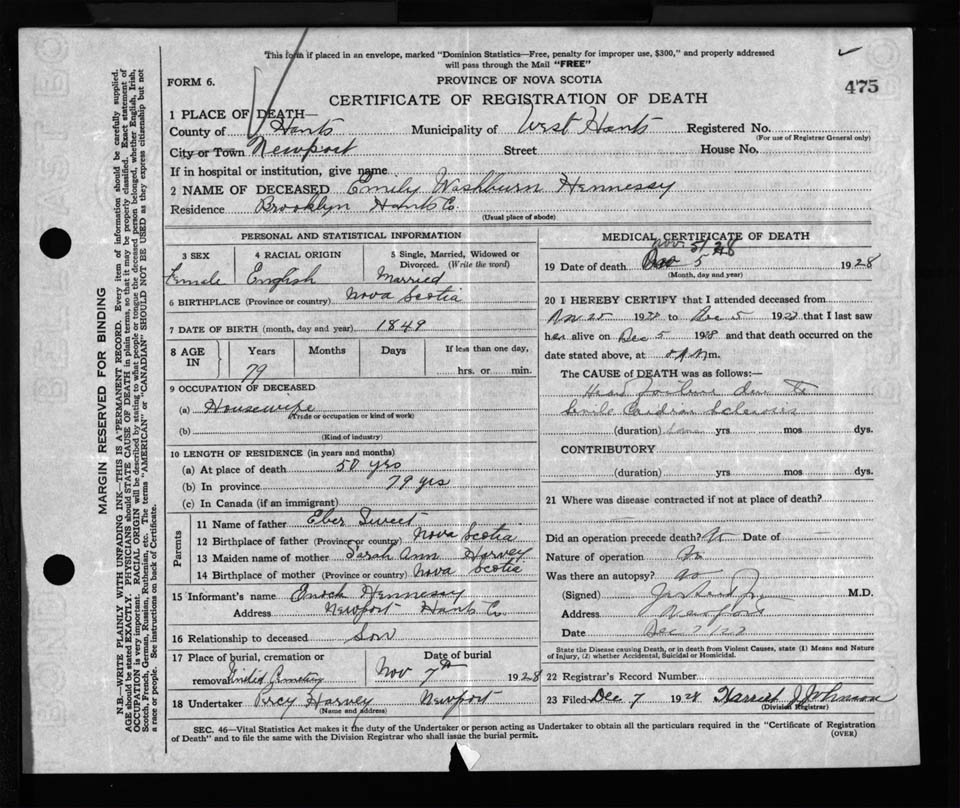 This form if placed in an envelope, marked "Dominion Statistics—Free, penalty for improper use, $300," and properly addressed
will pass through the Mail "FREE"
FORM 6.
PROVINCE OF NOVA SCOTIA
475
CERTIFICATE OF REGISTRATION OF DEATH
1 PLACE OF DEATH—
County of Hants Municipality of West Hants Registered No.
(For use of Registrar General only)
City or Town Newport Street House No.
If in hospital or institution, give name
2 NAME OF DECEASED Emily Washburn Hennessy
Residence Brooklyn Hants Co.
(Usual place of abode)
PERSONAL AND STATISTICAL INFORMATION
3 SEX 4 RACIAL ORIGIN 5 Single, Married, Widowed or
Divorced. (Write the word)
Female English Married
6 BIRTHPLACE (Province or country) Nova Scotia
7 DATE OF BIRTH (month, day and year) 1849
8 AGE IN Years Months Days If less than one day,
79 hrs. or min.
9 OCCUPATION OF DECEASED
(a) Housewife
(Trade or occupation or kind of work)
(b)
(Kind of industry)
10 LENGTH OF RESIDENCE (in years and months)
(a) At place of death 50 yrs
(b) In province 79 yrs
(c) In Canada (if an immigrant)
Parents
11 Name of father Eber Sweet
12 Birthplace of father (Province or country) Nova Scotia
13 Maiden name of mother Sarah Ann Harvey
14 Birthplace of mother (Province or country) Nova Scotia
15 Informant's name Enoch Hennessy
Address Newport Hants Co.
16 Relationship to deceased Son
17 Place of burial, cremation or removal Date of burial
Cemetery Nov 7th 1928
18 Undertaker Percy Harvey Newport
(Name and address)
MEDICAL CERTIFICATE OF DEATH
Nov. 5/28
19 Date of death 5 1928
(Month, day and year)
20 I HEREBY CERTIFY that I attended deceased from
Nov 25 192 to Dec 5 192 that I last saw
her alive on Dec 5 1928 and that death occurred on the
date stated above, at 8 A.M. m.
The CAUSE of DEATH was as follows:
Failure due to
Senile Sclerosis
(duration) yrs mos dys.
CONTRIBUTORY
(duration) yrs mos dys.
21 Where was disease contracted if not at place of death?
Did an operation precede death? No Date of
Nature of operation No
Was there an autopsy? No
(Signed) M.D.
Address Newport
Date Dec 7
State the Disease causing Death, or in death from Violent Causes, state (1) Means and Nature
of Injury, (2) whether Accidental, Suicidal or Homicidal.
22 Registrar's Record Number
23 Filed Dec 7 1928 Harriet J Johnson
(Division Registrar)
SEC. 46—Vital Statistics Act makes it the duty of the Undertaker or person acting as Undertaker to obtain all the particulars required in the "Certificate of Registration
of Death" and to file the same with the Division Registrar who shall issue the burial permit.
(OVER)
MARGIN RESERVED FOR BINDING
N.B.—WRITE PLAINLY WITH UNFADING INK—THIS IS A PERMANENT RECORD. Every item of information should be carefully supplied.
AGE should be stated EXACTLY. PHYSICIANS should STATE CAUSE OF DEATH in plain terms, so that it may be properly classified. Exact statement of
OCCUPATION is very important. RACIAL ORIGIN will be described by stating to what people or tongue the deceased person belonged, whether English, Irish,
Scotch, French, German, Russian, Ruthenian, etc. The terms "AMERICAN" or "CANADIAN" SHOULD NOT BE USED as they express citizenship but not
a race or people. See instructions on back of Certificate.